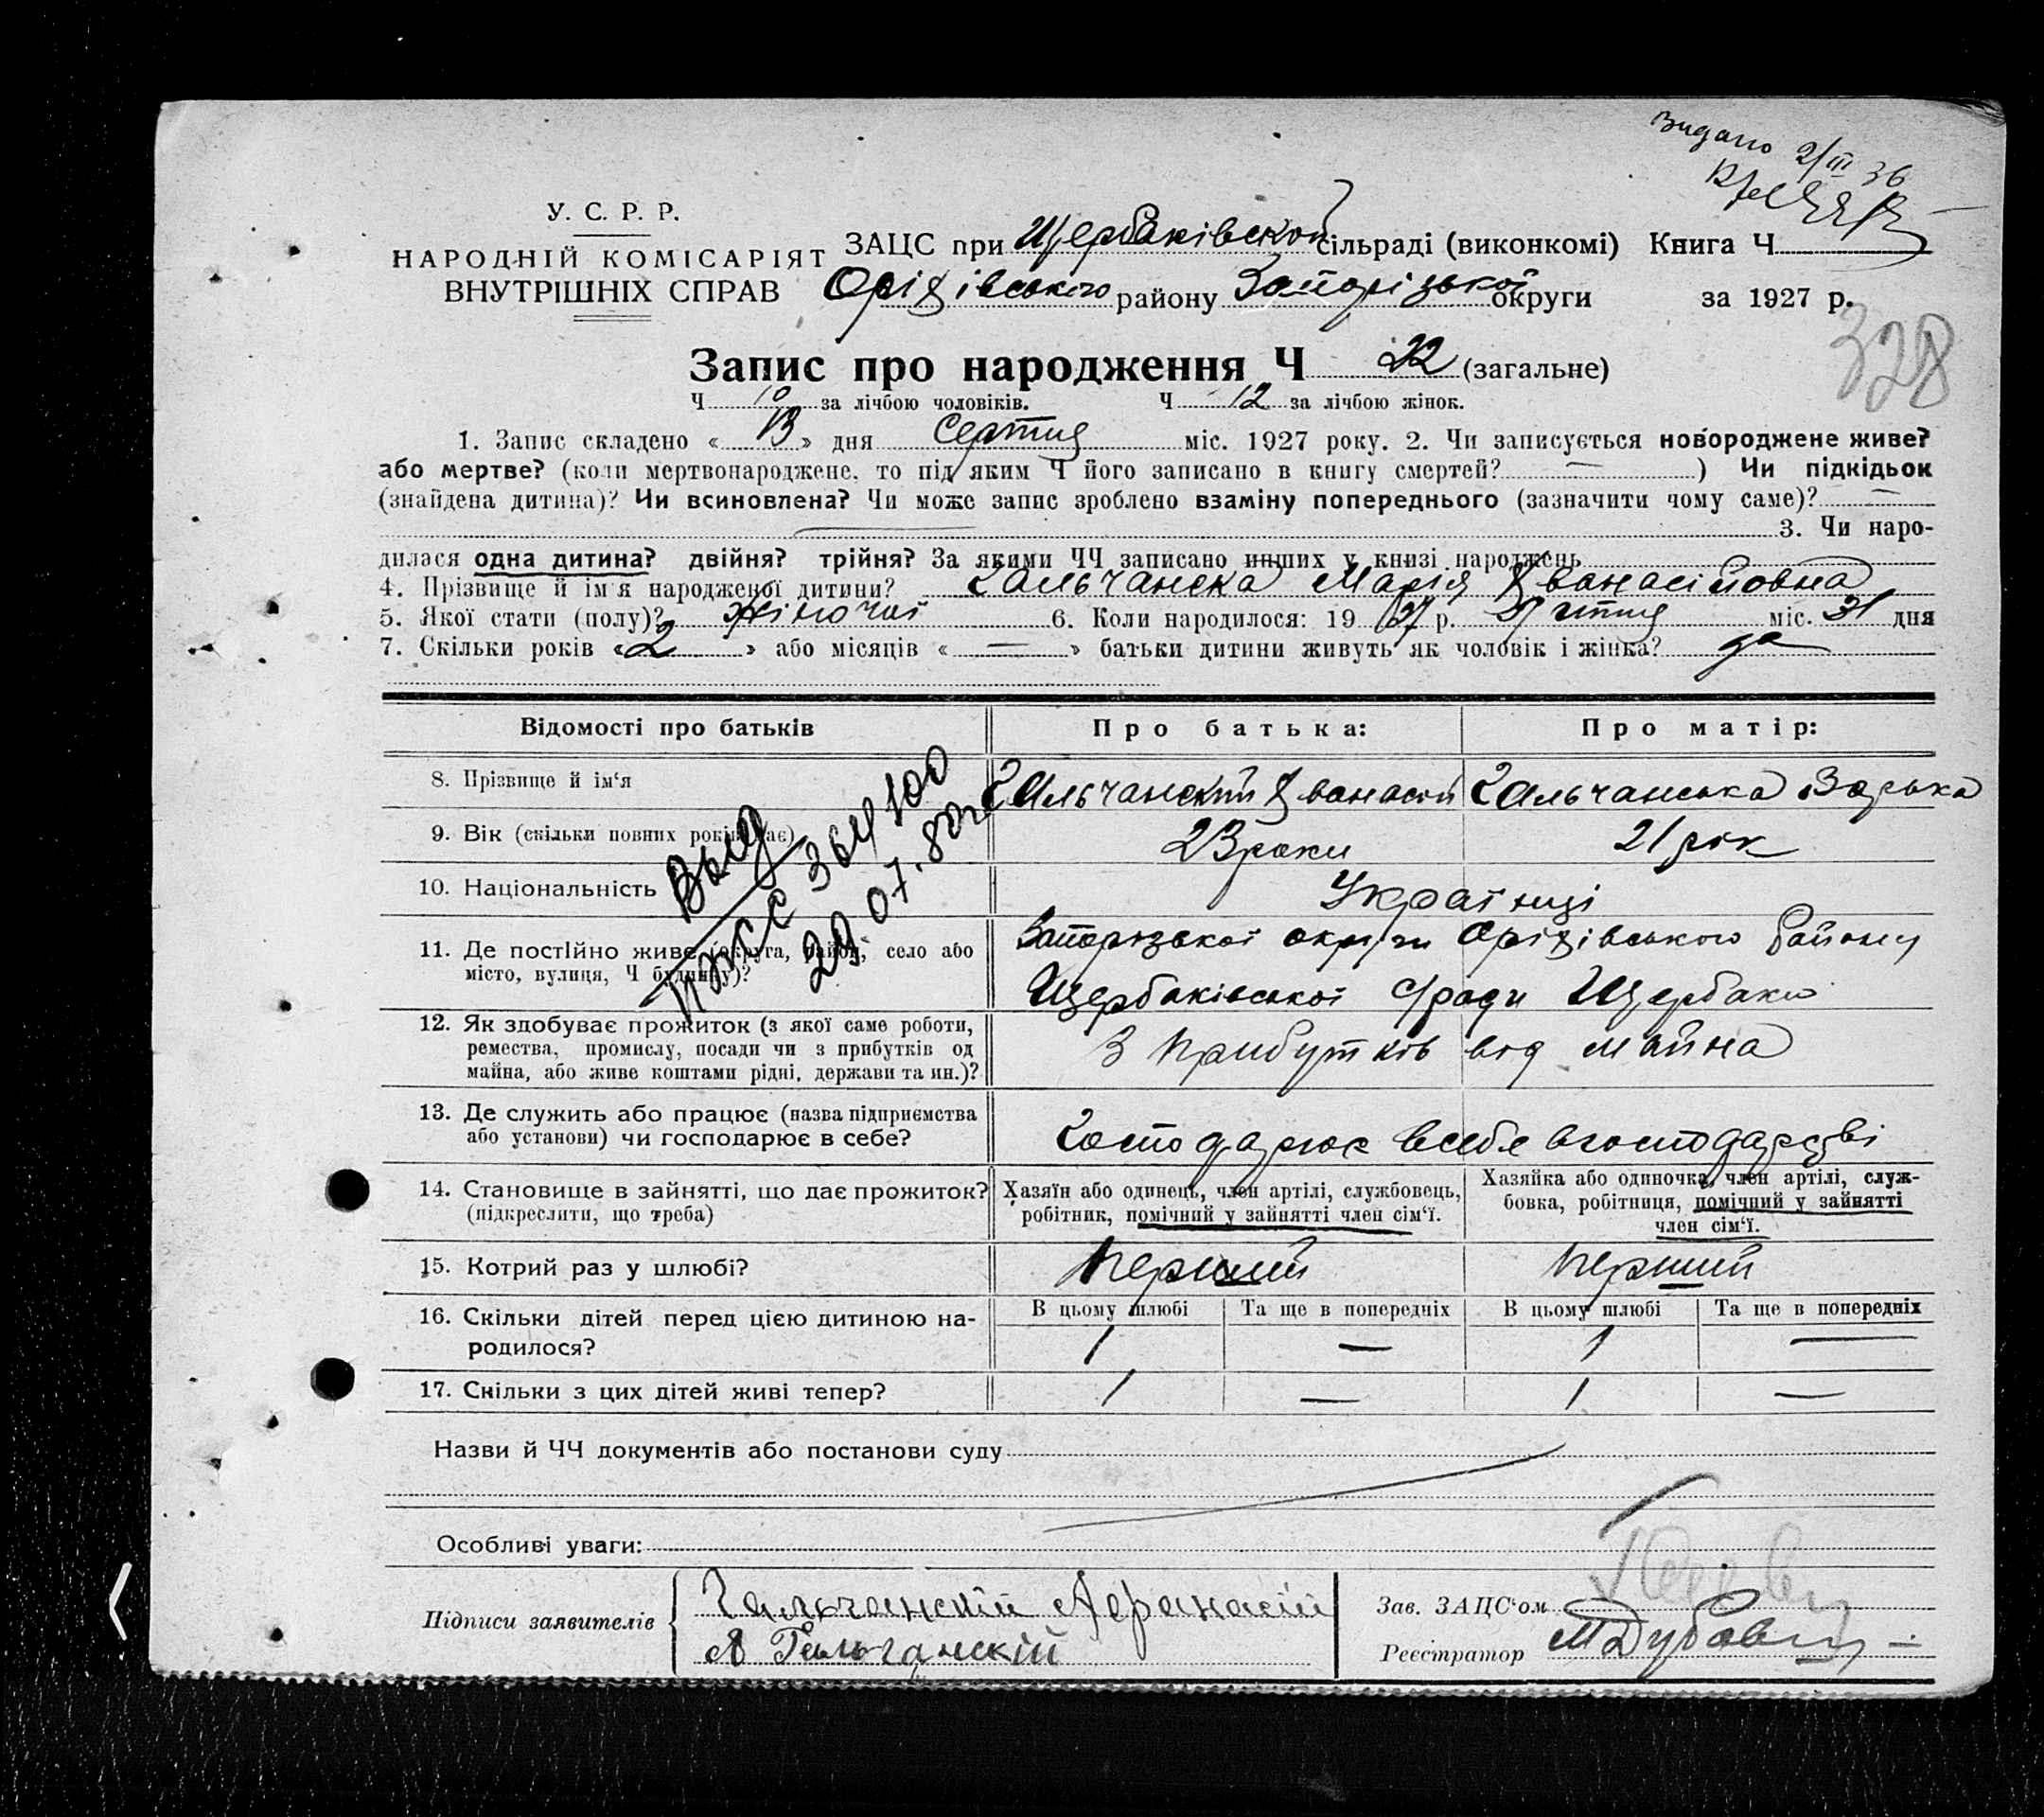 Видано 2/III 36
У. С. Р. Р.
НАРОДНІЙ КОМІСАРІЯТ
ВНУТРІШНІХ СПРАВ
ЗАЦС при Щербаківской сільраді (виконкомі) Книга Ч
Оріхівського району Запорізької округи за 1927 р.
328
Запис про народження Ч 22 (загальне)
Ч 10 за лічбою чоловіків. Ч 12 за лічбою жінок.
1. Запис складено « 13 » дня міс. 1927 року. 2. Чи записується новороджене живе?
або мертве? (коли мертвонароджене, то під яким Ч його записано в книгу смертей? — ) Чи підкідьок
(знайдена дитина)? Чи всиновлена? Чи може запис зроблено взаміну попереднього (зазначити чому саме)? —
3. Чи наро-
дилася одна дитина? двійня? трійня? За якими ЧЧ записано инших у книзі народжень
4. Прізвище й ім'я народженої дитини? Гальчанска Марія
5. Якої стати (полу)? жіночої 6. Коли народилося: 19 27 р. міс. 31 дня
7. Скільки років « 2 » або місяців « — » батьки дитини живуть як чоловік і жінка? да
Відомості про батьків
Про батька:
Про матір:
8. Прізвище й ім'я Гальчанский Гальчанська
9. Вік (скільки повних років має) 23 роки 21 рік
10. Національність Українці
Выд
364100
29.07.80
11. Де постійно живе (округа, район, село або
місто, вулиця, Ч будинку)?
Запорізької округи Оріхівського району
Щербаківської с/ради Щербаки
12. Як здобуває прожиток (з якої саме роботи,
ремества, промислу, посади чи з прибутків од
майна, або живе коштами рідні, держави та ин.)?
З прибутків від майна
13. Де служить або працює (назва підприємства
або установи) чи господарює в себе?
Господарює всебе вгосподарстві
14. Становище в зайнятті, що дає прожиток?
(підкреслити, що треба)
Хазяїн або одинець, член артілі, службовець,
робітник, помічний у зайнятті член сім'ї.
Хазяйка або одиночка, член артілі, служ-
бовка, робітниця, помічний у зайнятті
член сім'ї.
15. Котрий раз у шлюбі? перший перший
16. Скільки дітей перед цією дитиною на-
родилося?
В цьому шлюбі Та ще в попередніх В цьому шлюбі Та ще в попередніх
1 — 1 —
17. Скільки з цих дітей живі тепер? 1 — 1 —
Назви й ЧЧ документів або постанови суду
Особливі уваги:
Підписи заявителів
Гальчанскій Афранасій
А Гальчанскій
Зав. ЗАЦС'ом
Реєстратор